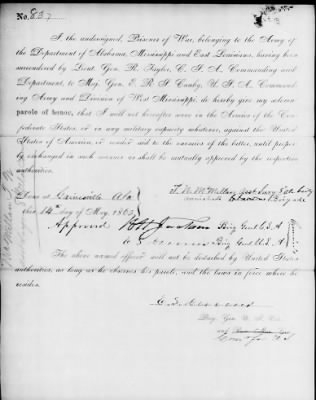 No. 837
I, the undersigned, Prisoner of War, belonging to the Army of
the Department of Alabama, Mississippi and East Louisiana, having been
surrendered by Lieut. Gen. R. Taylor, C. S. A., Commanding said
Department, to Maj. Gen. E. R. S. Canby, U. S. A., Command-
ing Army and Division of West Mississippi, do hereby give my solemn
parole of honor, that I will not hereafter serve in the Armies of the Con-
federate States, or in any military capacity whatever, against the United
States of America, or render aid to the enemies of the latter, until proper-
ly exchanged in such manner as shall be mutually approved by the respective
authorities.
Done at Gainesville Ala
this 14th day of May, 1865
Approved
Brig Genl C. S. A
Brig Genl U. S. A
The above named officer will not be disturbed by United States
authorities, as long as he observes his parole, and the laws in force where he
resides.
Brig. Gen. U. S.